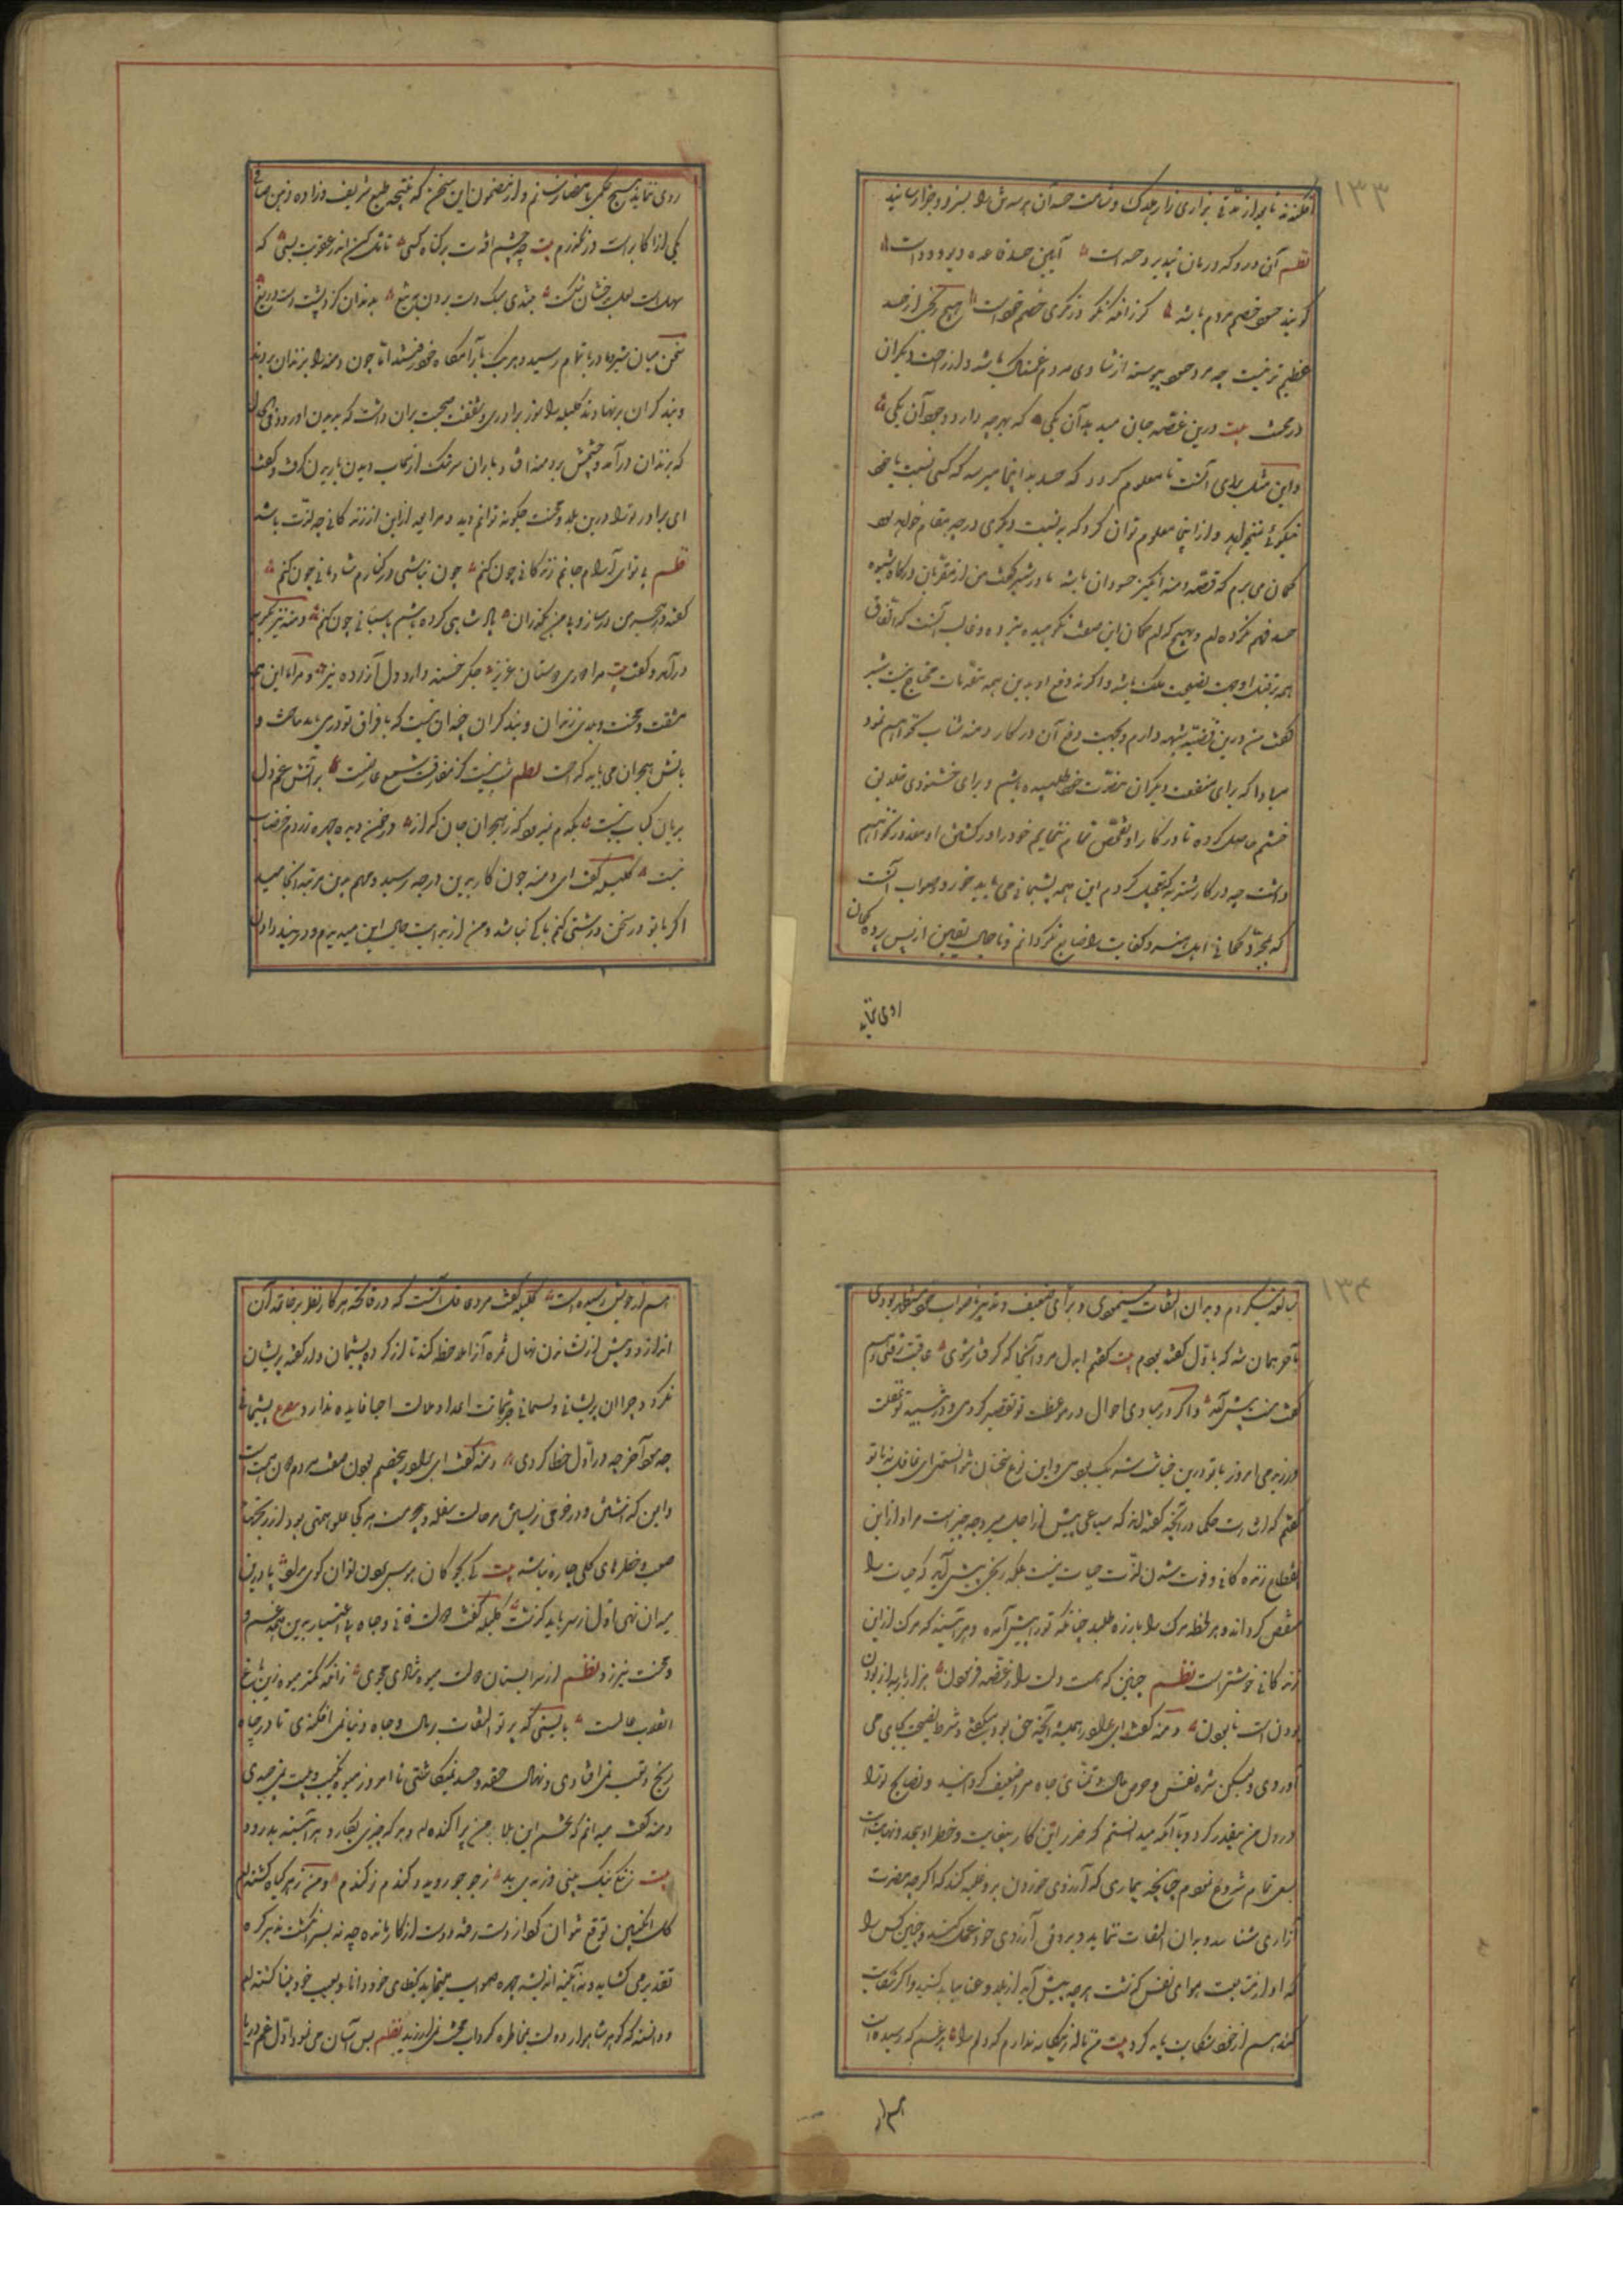 ۱۳۳
افکندند تا بعد از مدتی بزاری زار هلاک شد و شامت حسد آن هر سه تن را بسزا و جزا رسانید
نظم آن درد که درمان نپذیرد حسد است آیین حسد قاعده دیو و دد است
گویند حسود خصم مردم باشد گر زانکه نکو درنگری خصم خود است هیچ رنجی از حسد
عظیم‌تر نیست چه مرد حسود پیوسته از شادی مردم غمناک باشد و از راحت دیگران
در محنت بیت درین غصه جان میدهد آن یکی که بهر چه دارد وجود آن یکی
و این مثل برای آنست تا معلوم گردد که حسد بدانجا میرسد که کسی نسبت با خود
نیکوئی نمیخواهد و از اینجا معلوم توان کرد که به نسبت دیگری در چه مقام خواهد بود
گمان می‌برم که قصد دمنه انگیز حسودان باشد مادر شیر گفت من از مقربان درگاه شیوه
حسد فهم نکرده‌ام و هیچ کدام مکان این صفت نکوهیده نبرده و غالب آنست که اتفاق
همه بر قتل او جهت نصیحت ملک باشد و اگر نه دفع او بدین همه مقدمات محتاج نیست شیر
گفت من درین قضیه شبهه دارم و بجهت دفع آن در کار دمنه شتاب نخواهم نمود
مبادا که برای منفعت دیگران مضرت خود طلبیده باشم و برای خشنودی خلق
خشم حاصل کرده تا در کار او تفحص تمام ننمایم خود را در کشتن او معذور نخواهم
داشت چه در کار شنزبه تعجیل کردم این همه پشیمانی می باید خورد و صواب آنست
که بمجرد گمانی اهل هنر و کفایت را ضایع نگردانم و تا جمال یقین از پس پرده گمان
روی نماید
روی نماید هیچ حکمی بامضا نرسانم و از مضمون این سخن که نتیجه طبع شریف و زاده ذهن صافی
یکی از اکابر است درنگذرم بیت چو خشم آیدت بر گناه کسی تامل کنش در عقوبت بسی که
سهلست لعل بدخشان شکست بتندی سبک دست بردن به تیغ بدندان گزد پشت دست دریغ
سخن میان شیر و مادر باتمام رسید و هر یک بآرامگاه خود رفتند اما چون دمنه را بزندان بردند
و بند گران بر نهادند کلیله را سوز برادری و شفقت صحبت بران داشت که بدیدن او رود فی الحال
که بزندان درآمد و چشمش بر دمنه افتاد باران سرشک از سحاب دیدن باریدن گرفت و گفت
ای برادر ترا درین بلا و محنت چگونه توانم دید و مرا بعد از این از زندگانی چه لذت باشد
نظم بی تو ای آرام جانم زندگانی چون کنم چون نباشی در کنارم شادمانی چون کنم
گفته دمنه نیز بگریه
درآمد و گفت بیت مرا دوری دوستان عزیز جگر خسته دارد دل آزرده نیز و مرا با این همه
مشقت و محنت و بلای زندان و بند گران چندان نیست که با فراق تو دری باید ساخت و
بآتش هجران می باید گداخت نظم شب نیست کز مفارقت شمع عارضت بر آتش غم دل
بریان کباب نیست یکدم نمیرود که ز هجران جان گداز در خون دیده چهره زردم خضاب
نیست کلیله گفت ای دمنه چون کار بدین درجه رسید و مهم بدین مرتبه انجامید
اگر با تو در سخن درشتی کنم باکی نباشد و من از بدایت حال این میدیدم و در پند دادن
۱۳۴
مبالغه میکردم و بدان التفات نمینمودی و برای ضعیف و تدبیر ناصواب خود مستظهر بودی
و آخر همان شد که باول گفته بودم بیت گفتم ایدل مرو آنجا که گرفتار شوی عاقبت رفتی و هم
گفت منت پیش آمد و اگر در مبادی احوال در موعظت تو تقصیر کردمی و در تنبیه تو غفلت
ورزیدمی امروز با تو درین خیانت شریک بودمی و این نوع سخنان نتوانستمی ای غافل نه با تو
گفتم که اشارت حکما در آنچه گفته‌اند که ساعی پیش از اجل میرد چه چیز است مراد از این
انقطاع زندگانی و فوت شدن لذت حیات نیست بلکه رنجی پیش آید که حیات را
منغص گرداند و هر لحظه مرگ را بآرزو طلبد چنانکه تو را پیش آمده و هر آینه که مرگ از این
زندگانی خوشتر است نظم چنین که هست دلت را ز غصه فرسودن هزار بار به از بودن
بودن است نابودن دمنه گفت ای برادر همیشه آنچه حق بود میگفتی و شرط نصیحت بجای می
آوردی ولیکن شره نفس و حرص مال و تمنای جاه مرا ضعیف گردانید و نصایح تو را
در دل من بیقدر کرد و با آنکه میدانستم که ضرر این کار بیغایت و خطر او بیحد و نهایت است
بسعی تمام شروع نمودم چنانچه بیماری که آرزوی خوردن برو غلبه کند که اگر چه مضرت
آنرا می‌شناسد و بدان التفات ننماید و بر وفق آرزوی خود عمل کند و چنین کس را
که او از متابعت هوای نفس نگذشت هر چه پیش آید از بلا و عنا بباید کشید و اگر شکایت
کند هم از خود شکایت باید کرد بیت من ناله ز بیگانه ندارم که دلم را هر غم که رسیده است
هم از
هم از خویش رسیده است کلیله گفت مرد عاقل آنست که در فاتحه هر کار نظر بر خاتمه آن
اندازد و پیش از نشاندن نهال ثمره آنرا ملاحظه کند تا از کرده پشیمان و از گفته پریشان
نگردد چرا آن پریشانی و پشیمانی جز شماتت اعدا و ملالت احبا فایده ندارد مصرع پشیمانی
چه سود آخر چو در اول خطا کردی دمنه گفت ای برادر بی خصم بودن صفت مردم دون همت است
هر کجا علو همتی بود از رنجهای
صعب و خطرهای کلی چاره نباشد بیت
میدان نهی اول ز سر باید گذشت کلیله گفت دولت فانی و جاه بی اعتبار بدین همه غم و
و محنت نیرزد نظم از سرابستان دولت میوه شادی مجوی زانکه کمتر میوه زین باغ
انقلاب حالست بایستی که پرتو التفات بمال و جاه دنیا نمی‌افکندی تا در چاه
رنج و تعب نمی‌افتادی و نهال حقد و حسد نمیکاشتی تا امروز میوه نکبت و بلیت نمی‌چیدی
دمنه گفت میدانم که تخم این بلا من پراکنده‌ام و هر که چیزی بکارد هر آینه بدرود
بیت ز جو جو روید و گندم ز گندم و من زهر گیاه کشته‌ام
گل انگبین توقع نتوان کرد از دست رفته و دست از کار مانده چه نه بسر انگشت تدبیر گره
تقدیر می گشاید و نه آیینه اندیشه چهره صواب مینماید بخطای خود دانا و بعیب خود بینا گشته‌ام
و دانسته که گوهر شاهوار دولت بمخاطره گرداب محنت نمی‌ارزد نظم بس آسان می نمود اول غم دریا